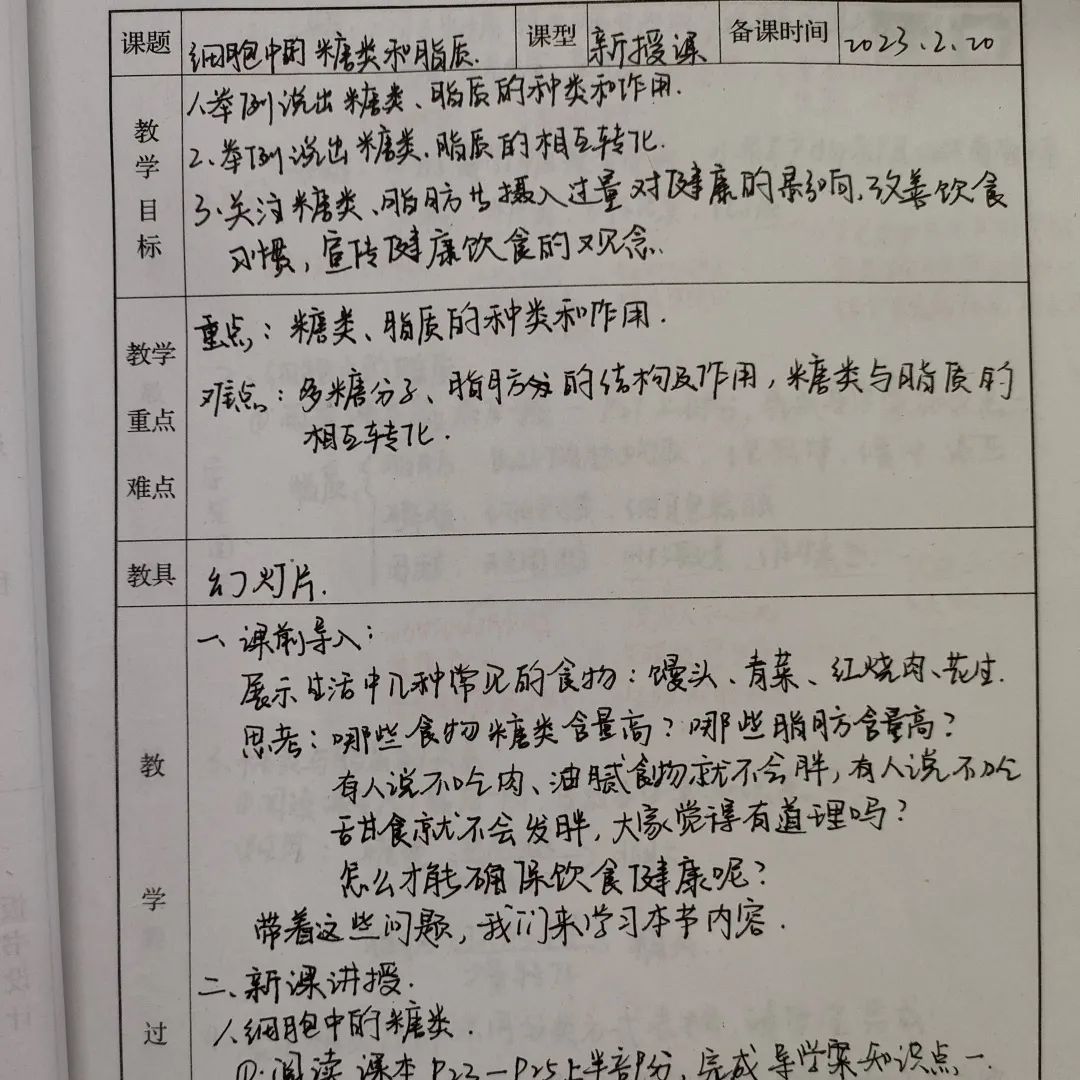 课题 细胞中的糖类和脂质. 课型 新授课 备课时间 2023.2.20
教学目标
1.举例说出糖类、脂质的种类和作用.
2.举例说出糖类、脂质的相互转化.
3.关注糖类、脂肪等摄入过量对健康的影响,改善饮食
习惯,宣传健康饮食的观念.
教学重点难点
重点:糖类、脂质的种类和作用.
难点:多糖分子、脂肪分子的结构及作用,糖类与脂质的
相互转化.
教具 幻灯片.
教学过
一、课前导入:
展示生活中几种常见的食物:馒头、青菜、红烧肉、花生.
思考:哪些食物糖类含量高?哪些脂肪含量高?
有人说不吃肉、油腻食物就不会胖,有人说不吃
甜食就不会发胖,大家觉得有道理吗?
怎么才能确保饮食健康呢?
带着这些问题,我们来学习本节内容.
二、新课讲授.
1.细胞中的糖类.
①.阅读课本P23—P25上半部分,完成导学案知识点一.